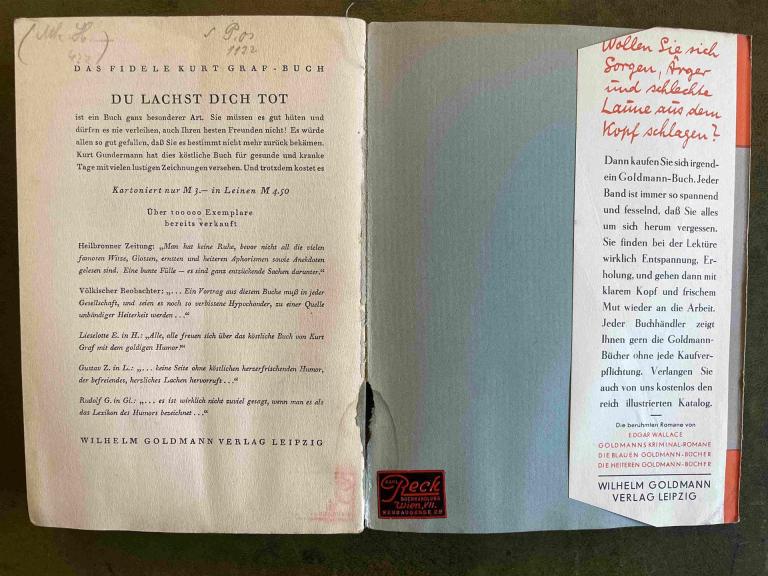 s P.os
1122
DAS FIDELE KURT GRAF-BUCH
DU LACHST DICH TOT
ist ein Buch ganz besonderer Art. Sie müssen es gut hüten und
dürfen es nie verleihen, auch Ihren besten Freunden nicht! Es würde
allen so gut gefallen, daß Sie es bestimmt nicht mehr zurück bekämen.
Kurt Gundermann hat dies köstliche Buch für gesunde und kranke
Tage mit vielen lustigen Zeichnungen versehen. Und trotzdem kostet es
Kartoniert nur M 3.— in Leinen M 4.50
Über 100000 Exemplare
bereits verkauft
Heilbronner Zeitung: „Man hat keine Ruhe, bevor nicht all die vielen
famosen Witze, Glossen, ernsten und heiteren Aphorismen sowie Anekdoten
gelesen sind. Eine bunte Fülle — es sind ganz entzückende Sachen darunter.“
Völkischer Beobachter: „... Ein Vortrag aus diesem Buche muß in jeder
Gesellschaft, und seien es noch so verbissene Hypochonder, zu einer Quelle
unbändiger Heiterkeit werden ...“
Lieselotte E. in H.: „Alle, alle freuen sich über das köstliche Buch von Kurt
Graf mit dem goldigen Humor!“
Gustav Z. in L.: „... keine Seite ohne köstlichen herzerfrischenden Humor,
der befreiendes, herzliches Lachen hervorruft ...“
Rudolf G. in Gl.: „... es ist wirklich nicht zuviel gesagt, wenn man es als
das Lexikon des Humors bezeichnet ...“
WILHELM GOLDMANN VERLAG LEIPZIG
Reck
BUCHHANDLUNG
Wien, VII.
NEUBAUGASSE 29
Wollen Sie sich
Sorgen, Ärger
und schlechte
Laune aus dem
Kopf schlagen?
Dann kaufen Sie sich irgend-
ein Goldmann-Buch. Jeder
Band ist immer so spannend
und fesselnd, daß Sie alles
um sich herum vergessen.
Sie finden bei der Lektüre
wirklich Entspannung, Er-
holung, und gehen dann mit
klarem Kopf und frischem
Mut wieder an die Arbeit.
Jeder Buchhändler zeigt
Ihnen gern die Goldmann-
Bücher ohne jede Kaufver-
pflichtung. Verlangen Sie
auch von uns kostenlos den
reich illustrierten Katalog.
Die berühmten Romane von
EDGAR WALLACE
GOLDMANNS KRIMINAL-ROMANE
DIE BLAUEN GOLDMANN-BÜCHER
DIE HEITEREN GOLDMANN-BÜCHER
WILHELM GOLDMANN
VERLAG LEIPZIG